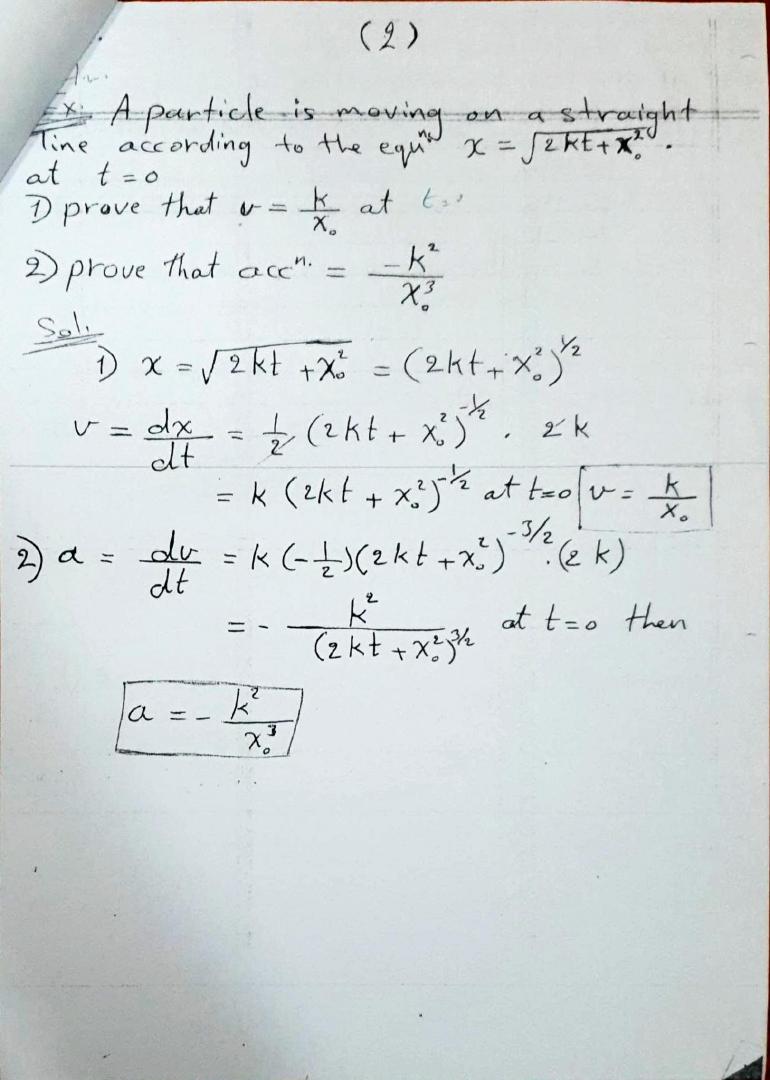 (2)
Ex: A particle is moving on a straight
line according to the equⁿ x = √(2kt + x₀²) .
at t = 0
1) prove that v = k/x₀ at
2) prove that accⁿ. = -k²/x₀³
Sol.
1) x = √(2kt + x₀²) = (2kt + x₀²)^1/2
v = dx/dt = 1/2 (2kt + x₀²)^-1/2 . 2k
= k (2kt + x₀²)^-1/2 at t=0 v = k/x₀
2) a = dv/dt = k (-1/2)(2kt + x₀²)^-3/2 . (2k)
= - k²/(2kt + x₀²)^3/2 at t=0 then
a = - k²/x₀³